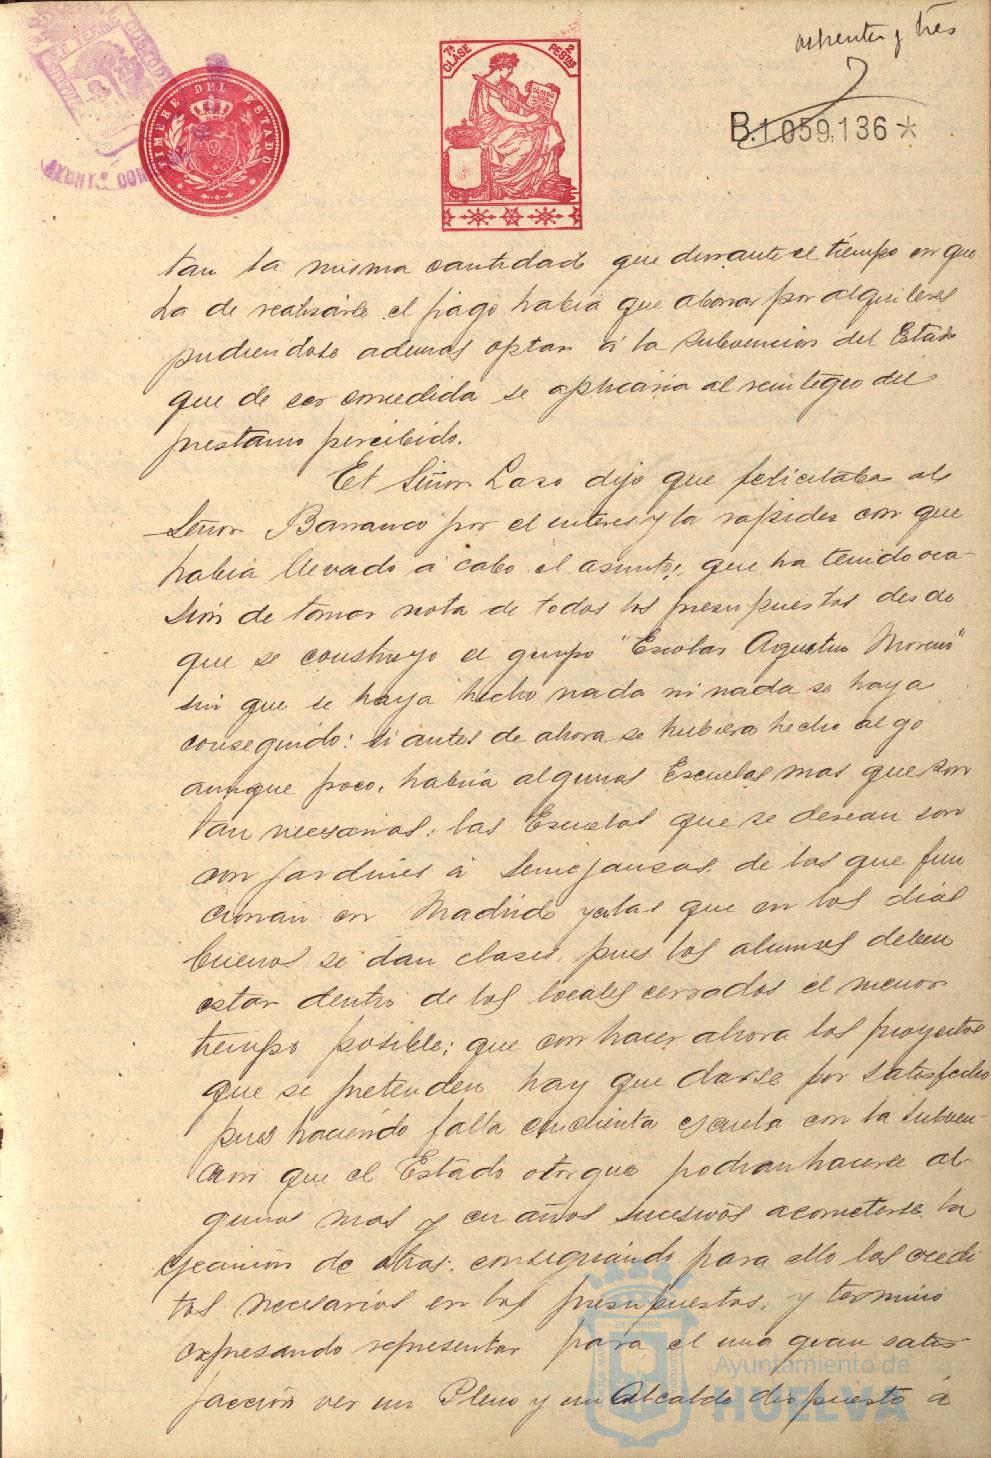 ochenta y tres
7ª CLASE
2 PESTAS
TIMBRE DEL ESTADO
B.1.059,136*
tan la misma cantidad que durante el tiempo en que
ha de realizarse el pago habia que abonar por alquileres
pudiendose ademas optar á la subvencion del Estado
que de ser concedida se aplicaria al reintegro del
prestamo percibido.
El Señor Laso dijo que felicitaba al
Señor Barranco por el interes y la rapidez con que
habia llevado á cabo el asunto; que ha tenido oca-
sion de tomar nota de todos los presupuestos desde
que se construyo el grupo "Escolar Agustin Moreno"
sin que se haya hecho nada ni nada se haya
conseguido: si antes de ahora se hubiera hecho algo
aunque poco, habria algunas Escuelas mas que son
tan necesarias; las Escuelas que se desean son
con jardines á semejanzas de las que fun
cionan en Madrid y en las que en los dias
buenos se dan clases, pues los alumnos deben
estar dentro de los locales cerrados el menor
tiempo posible; que con hacer ahora los proyectos
que se pretenden hay que darse por satisfecho
pues haciendo falta cincuenta escuela con la subven-
cion que el Estado otorgue podran hacerse al-
gunas mas y en años sucesivos acometerse la
ejecucion de otras, consiguiendo para ello los credi
tos necesarios en los presupuestos, y termino
expresando representar para el una gran satis
faccion ver un Pleno y un Alcalde dispuesto á
Ayuntamiento de
HUELVA